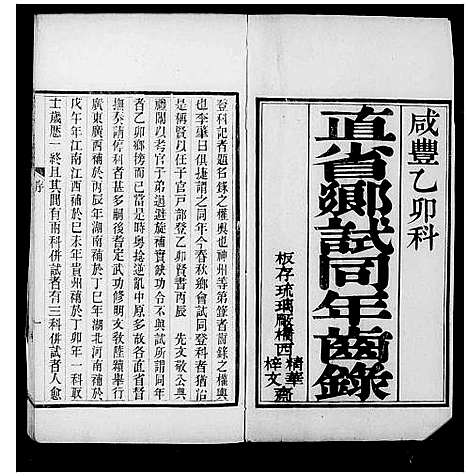 咸豐乙卯科
直省鄉試同年齒錄
板存琉璃厰橋西
精華齋
梓文
登科記者題名錄之權輿也神州等第錄者齒錄之權輿
也李肇曰俱捷謂之同年今春秋鄉會試同登科者猶沿
是稱賢以任子官戸部登乙卯賢書丙辰 先文敬公典
禮闈以考官子弟迴避旋補實錄功令不與試所謂同年
者乙卯鄉榜而已當是時粵捻逆亂中原多故各直省督
撫奏請停科者甚多嗣後者定武功修明文敎陸續舉行
廣東廣西補於丙辰年湖南補於丁巳年湖北河南補於
戊午年江南江西補於己未年貴州補於丁卯年一科取
士歲歷一終且其間有兩科併試者有三科併試者人愈
序
一